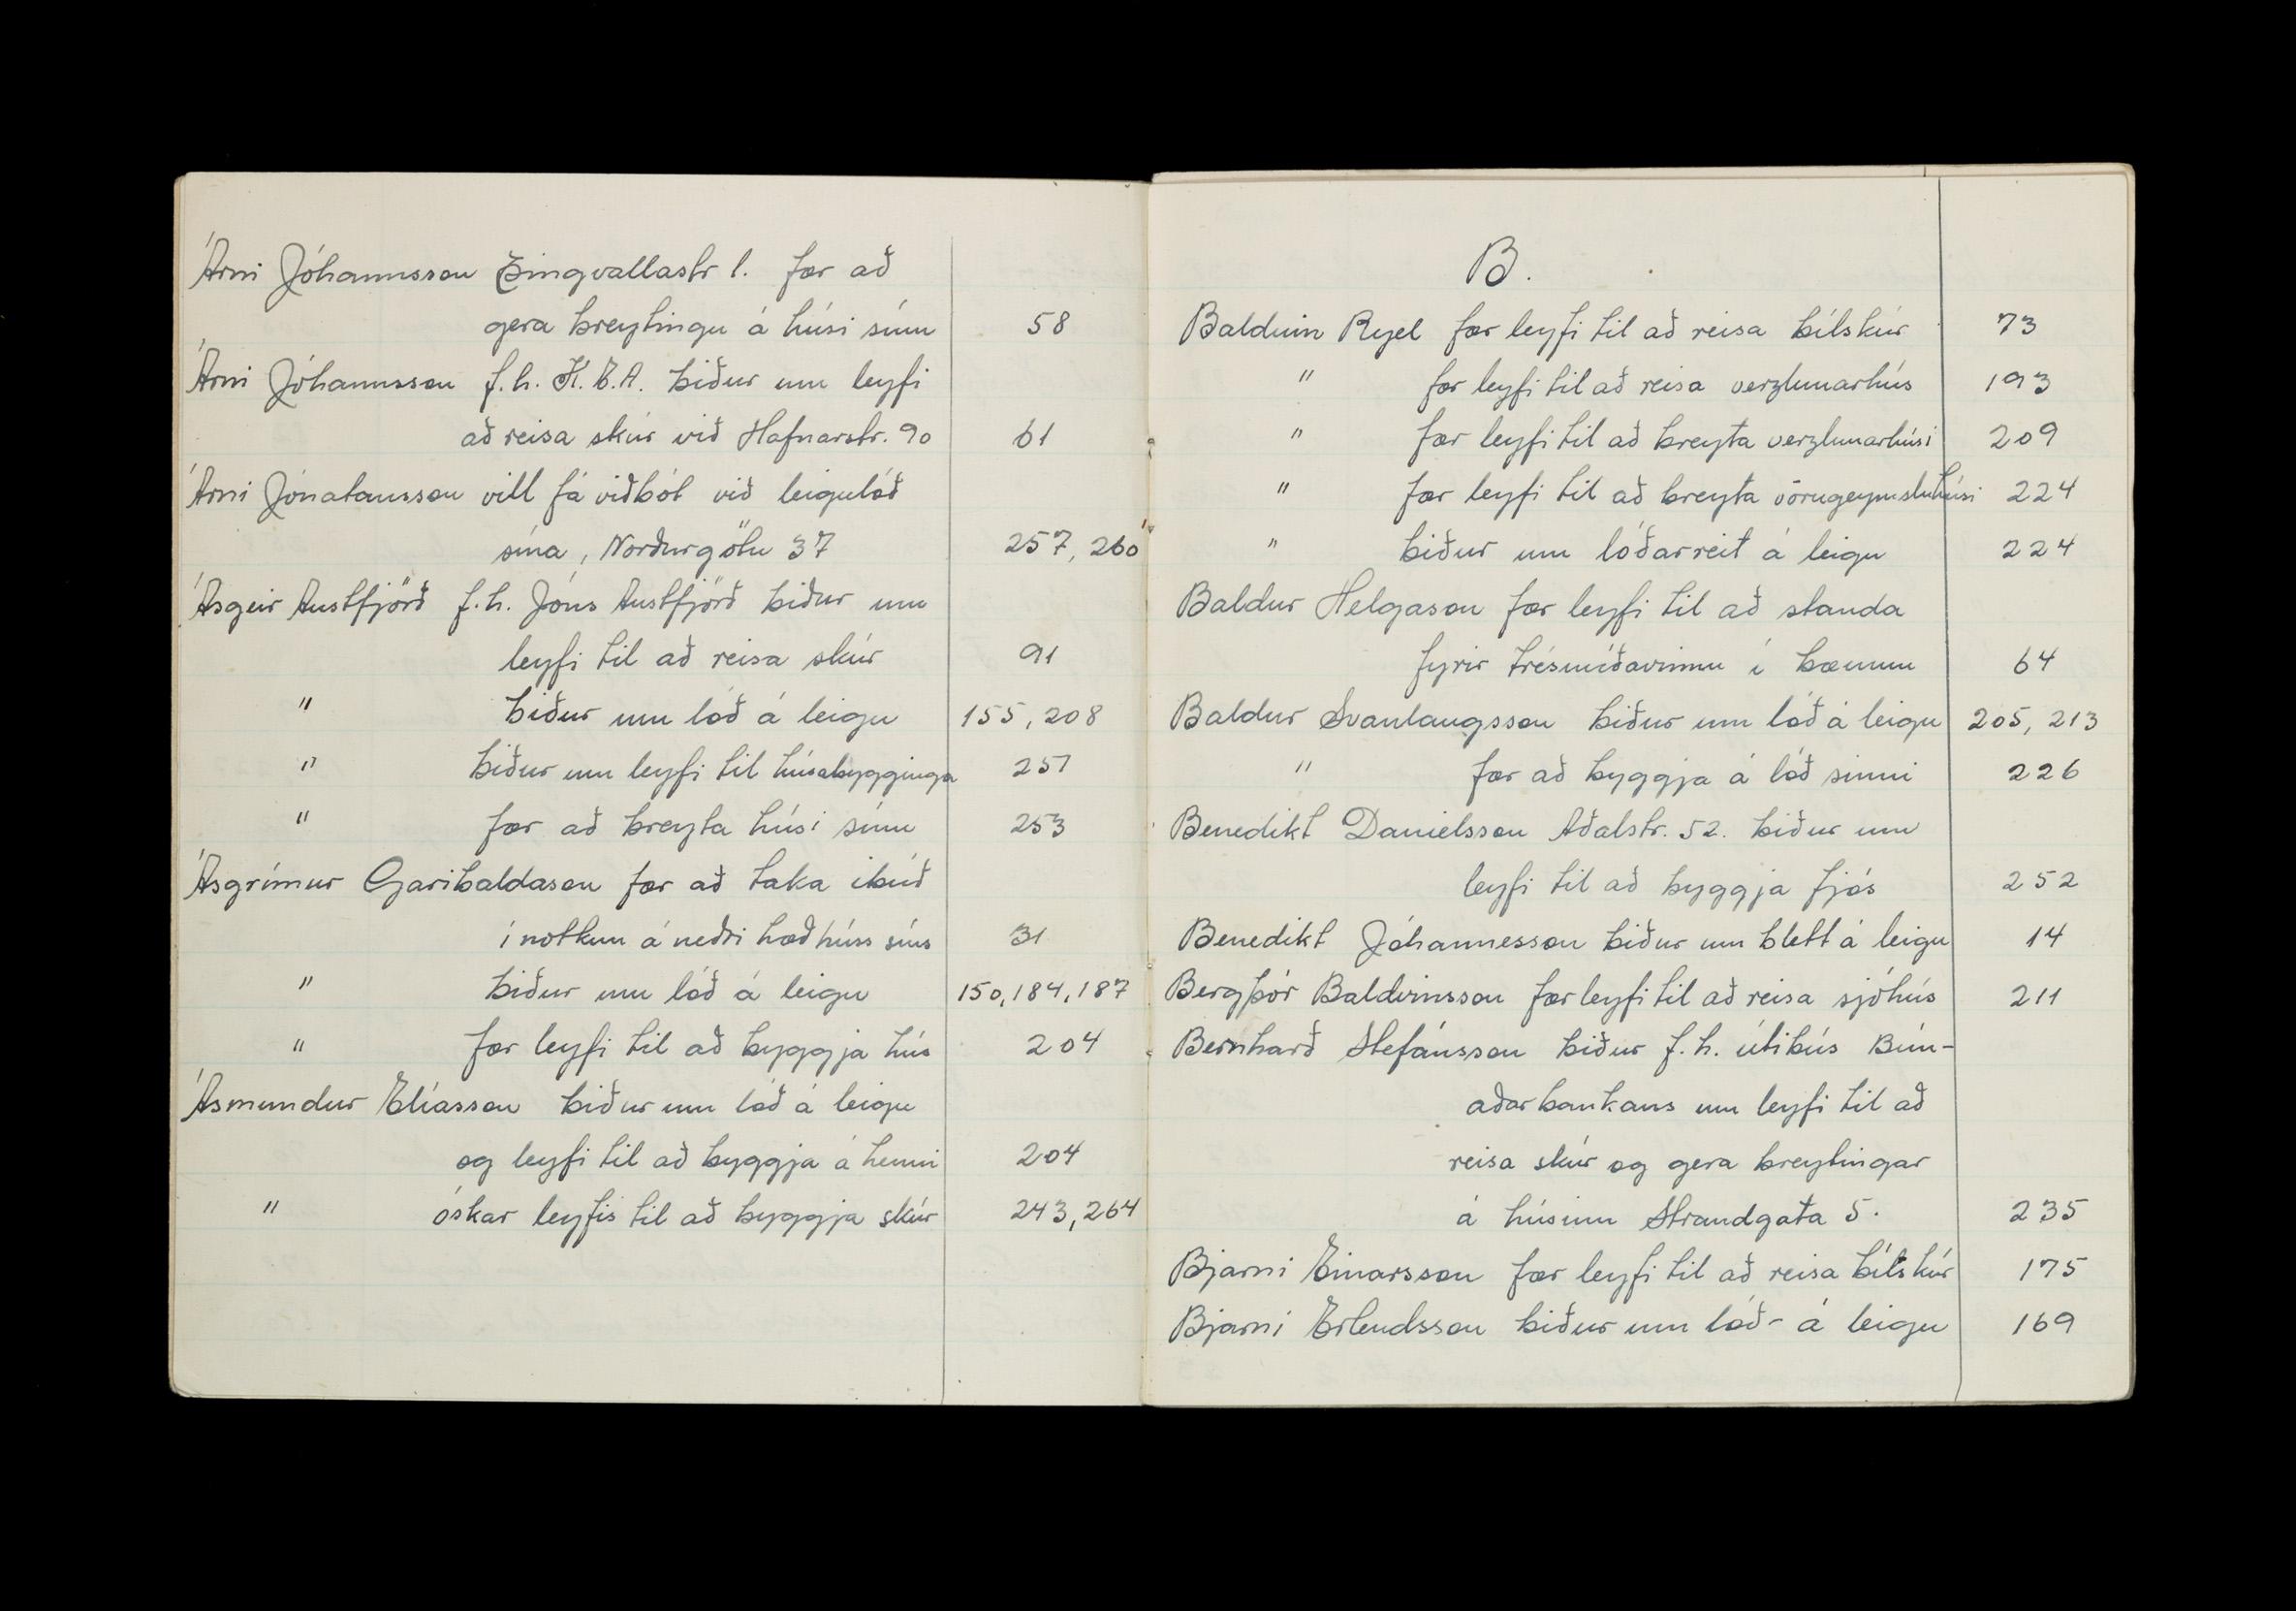 Árni Jóhannsson Þingvallastr 1. fær að
gera breytingu á húsi sínu 58
Árni Jóhannsson f.h. K.E.A. biður um leyfi
að reisa skúr við Hafnarstr. 90 61
Árni Jónatansson vill fá viðbót við leigulóð
sína, Norðurgötu 37 257, 260
Ásgeir Austfjörð f.h. Jóns Austfjörð biður um
leyfi til að reisa skúr 91
" biður um lóð á leigu 155, 208
" biður um leyfi til húsabygginga 251
" fær að breyta húsi sínu 253
Ásgrímur Garibaldason fær að taka íbúð
í notkun á neðri hæð húss síns 31
" biður um lóð á leigu 150, 184, 187
" fær leyfi til að byggja hús 204
Ásmundur Elíasson biður um lóð á leigu
og leyfi til að byggja á henni 204
" óskar leyfis til að byggja skúr 243, 264
B.
Balduin Ryel fær leyfi til að reisa bílskúr 73
" fær leyfi til að reisa verzlunarhús 193
" fær leyfi til að breyta verzlunarhúsi 209
" fær leyfi til að breyta vörugeymsluhúsi 224
" biður um lóðarreit á leigu 224
Baldur Helgason fær leyfi til að standa
fyrir trésmíðavinnu í bænum 64
Baldur Svanlaugsson biður um lóð á leigu 205, 213
" fær að byggja á lóð sinni 226
Benedikt Danielsson Aðalstr. 52. biður um
leyfi til að byggja fjós 252
Benedikt Jóhannesson biður um blett á leigu 14
Bergþór Baldvinsson fær leyfi til að reisa sjóhús 211
Bernharð Stefánsson biður f.h. útibús Bún-
aðarbankans um leyfi til að
reisa skúr og gera breytingar
á húsinu Strandgata 5. 235
Bjarni Einarsson fær leyfi til að reisa bílskúr 175
Bjarni Erlendsson biður um lóð- á leigu 169